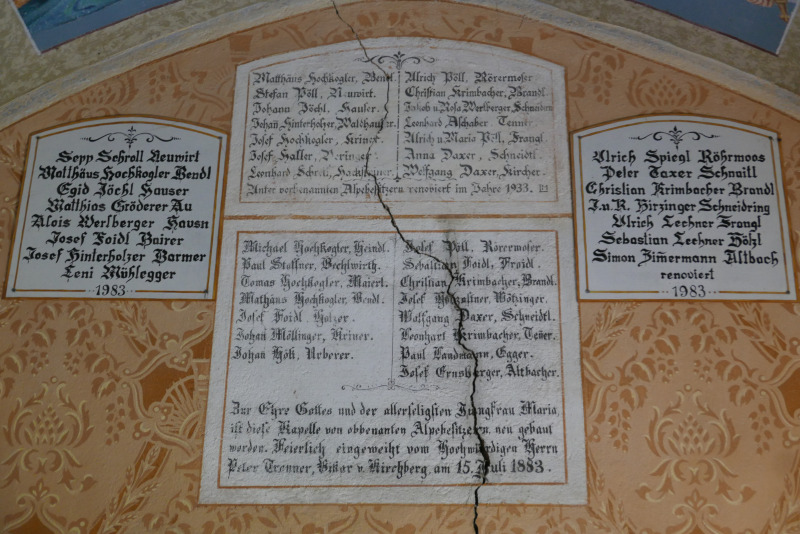 Sepp Schroll Neuwirt
Matthäus Hochkogler Bendl
Egid Jöchl Hauser
Matthias Gröderer Au
Alois Werlberger Hausn
Josef Foidl Bairer
Josef Hinterholzer Barmer
Leni Mühlegger
1983
Matthäus Hochkogler, Bendl.
Stefan Pöll, Neuwirt.
Johann Jöchl. Hauser.
Johañ Hinterholzer, Waldhauser.
Josef Hochkogler, Kriner.
Josef Haller,
Leonhard
Ulrich Pöll, Rörermoser.
Christian Krimbacher, Brandl.
Jakob u Rosa Werlberger Schneidan
Leonhard Aschaber Tenner
Ulrich u Maria Pöll, Frangl
Anna Daxer, Schneidtl.
Wolfgang Daxer, Kircher.
Unter vorbenannten Alpebesitzern renoviert im Jahre 1933.
Michael Hochkogler, Heindl.
Paul Staffner, Bechlwirth.
Tomas Hochkogler, Maierl.
Mathäus Hochkogler, Bendl.
Josef Foidl, Holzer.
Johañ Möllinger, Kriner.
Johañ Hölt, Urberer.
Josef Pöll, Rörermoser.
Sebastian Foidl, Froidl.
Christian Krimbacher, Brandl.
Josef Wötzinger.
Wolfgang Daxer, Schneidtl.
Leonhart Krimbacher, Teñer.
Paul Landmann, Egger.
Josef Ernsberger, Altbacher.
Zur Ehre Gottes und der allerseligsten Jungfrau Maria,
ist diese Kapelle von obbenanten Alpebesitzern neu gebaut
worden. Feierlich eingeweiht vom Hochwürdigen Herrn
Peter Tronner, Vikar v. Kirchberg, am 15. Juli 1883.
Ulrich Spiegl Röhrmoos
Peter Taxer Schnaitl
Christian Krimbacher Brandl
J.u.R. Hirzinger Schneidring
Ulrich Lechner Frangl
Sebastian Lechner Hölzl
Simon Zim̃ermann Altbach
renoviert
1983